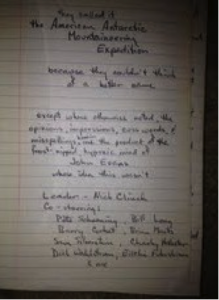 they called it
the American Antarctic
Mountaineering
Expedition
because they couldn't think
of a better name
except where otherwise noted, the
opinions, impressions, cuss words, &
misspellings, are the product of the
front-, hypoxic mind of
John Evans
whose idea this wasn't
Leader - Nick Clinch
Co-starring:
Pete Schoening, Bill Long
Barry Corbet, Brian Marts
Sam Silverstein, Charley Hollister
Dick Wahlstrom, Eiichi Fukushima
& me